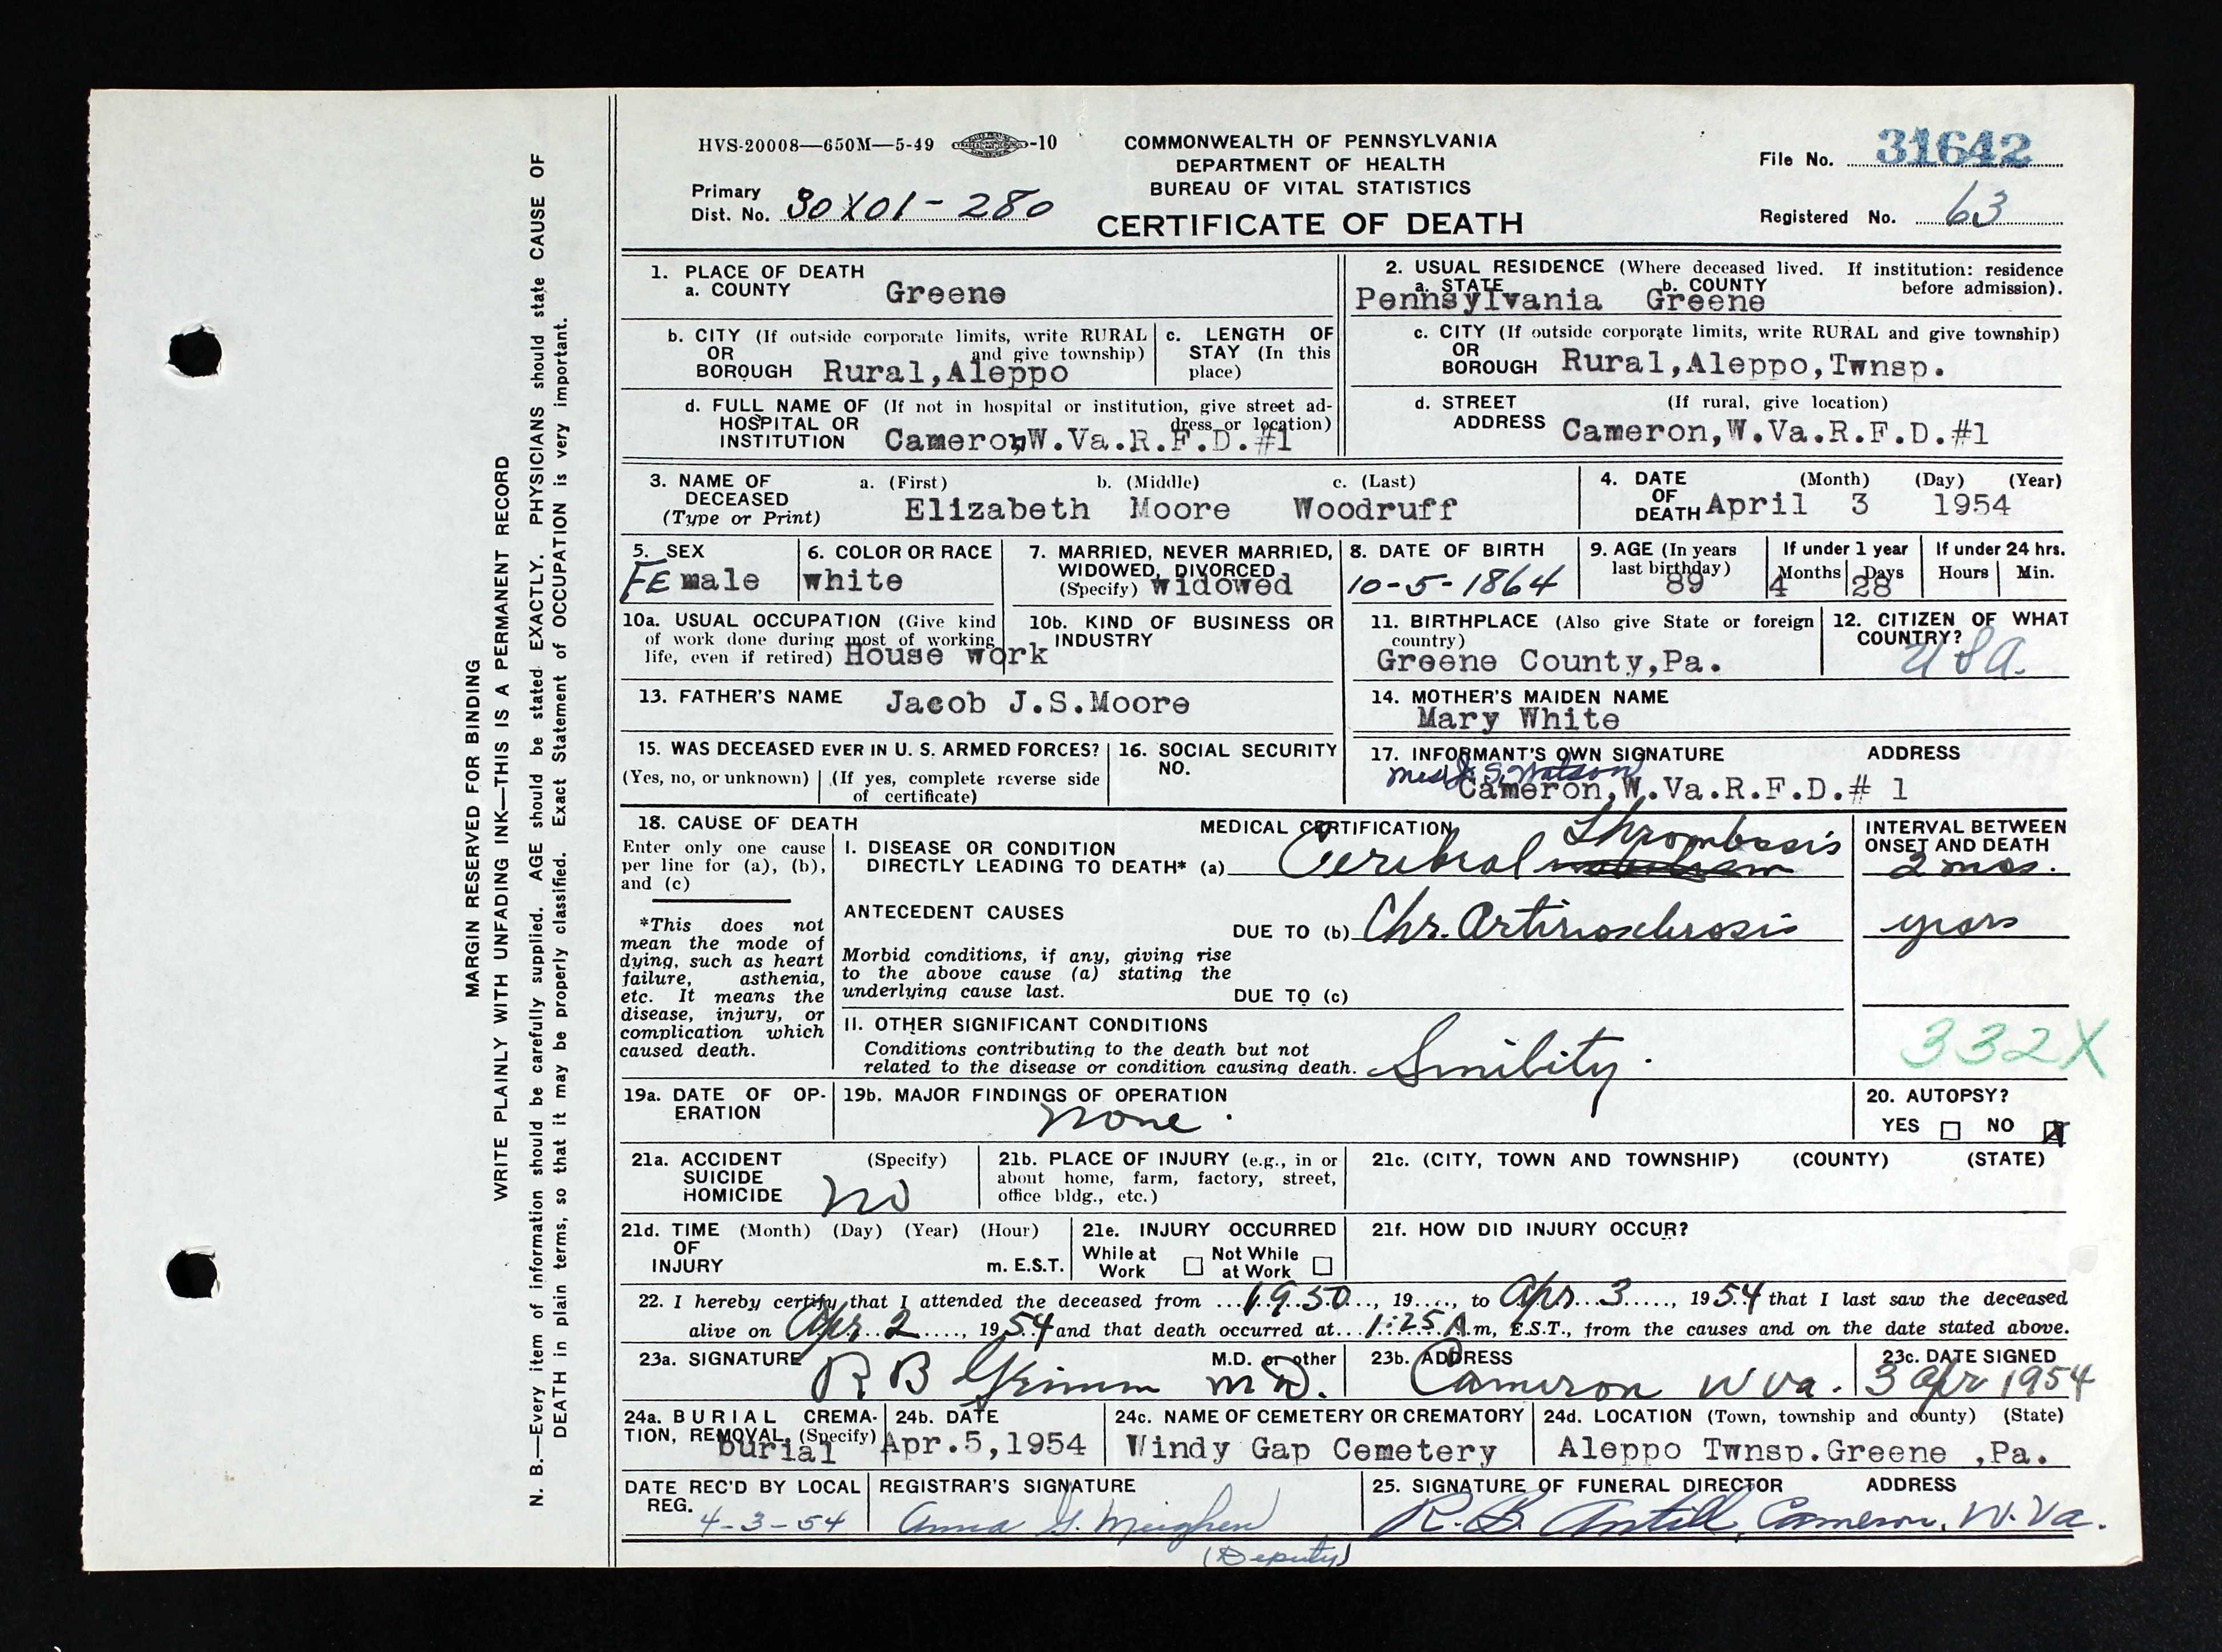 HVS-20008—650M—5-49 -10
COMMONWEALTH OF PENNSYLVANIA
DEPARTMENT OF HEALTH
BUREAU OF VITAL STATISTICS
CERTIFICATE OF DEATH
File No. 31642
Primary
Dist. No. 30X01-280
Registered No. 63
1. PLACE OF DEATH
a. COUNTY Greene
2. USUAL RESIDENCE (Where deceased lived. If institution: residence before admission).
a. STATE b. COUNTY
Pennsylvania Greene
b. CITY (If outside corporate limits, write RURAL
OR and give township)
BOROUGH Rural,Aleppo
c. LENGTH OF
STAY (In this
place)
c. CITY (If outside corporate limits, write RURAL and give township)
OR
BOROUGH Rural,Aleppo,Twnsp.
d. FULL NAME OF (If not in hospital or institution, give street ad-
HOSPITAL OR dress or location)
INSTITUTION Cameron,W.Va.R.F.D.#1
d. STREET (If rural, give location)
ADDRESS Cameron,W.Va.R.F.D.#1
3. NAME OF a. (First) b. (Middle) c. (Last)
DECEASED
(Type or Print) Elizabeth Moore Woodruff
4. DATE (Month) (Day) (Year)
OF
DEATH April 3 1954
5. SEX
FEmale
6. COLOR OR RACE
white
7. MARRIED, NEVER MARRIED,
WIDOWED, DIVORCED
(Specify) Widowed
8. DATE OF BIRTH
10-5-1864
9. AGE (In years
last birthday)
89
If under 1 year
Months Days
4 28
If under 24 hrs.
Hours Min.
10a. USUAL OCCUPATION (Give kind
of work done during most of working
life, even if retired) House work
10b. KIND OF BUSINESS OR
INDUSTRY
11. BIRTHPLACE (Also give State or foreign
country)
Greene County,Pa.
12. CITIZEN OF WHAT
COUNTRY?
USA.
13. FATHER'S NAME Jacob J.S.Moore
14. MOTHER'S MAIDEN NAME
Mary White
15. WAS DECEASED EVER IN U. S. ARMED FORCES?
(Yes, no, or unknown) (If yes, complete reverse side
of certificate)
16. SOCIAL SECURITY
NO.
17. INFORMANT'S OWN SIGNATURE ADDRESS
S. Watson
Cameron,W.Va.R.F.D.# 1
18. CAUSE OF DEATH
Enter only one cause
per line for (a), (b),
and (c)
*This does not
mean the mode of
dying, such as heart
failure, asthenia,
etc. It means the
disease, injury, or
complication which
caused death.
MEDICAL CERTIFICATION
I. DISEASE OR CONDITION
DIRECTLY LEADING TO DEATH* (a) Cerebral Thrombosis
ANTECEDENT CAUSES
DUE TO (b) Chr. Arteriosclerosis
Morbid conditions, if any, giving rise
to the above cause (a) stating the
underlying cause last.
DUE TO (c)
II. OTHER SIGNIFICANT CONDITIONS
Conditions contributing to the death but not
related to the disease or condition causing death. Senility.
INTERVAL BETWEEN
ONSET AND DEATH
2 mos.
years
332X
19a. DATE OF OP-
ERATION
19b. MAJOR FINDINGS OF OPERATION
none.
20. AUTOPSY?
YES NO X
21a. ACCIDENT (Specify)
SUICIDE
HOMICIDE no
21b. PLACE OF INJURY (e.g., in or
about home, farm, factory, street,
office bldg., etc.)
21c. (CITY, TOWN AND TOWNSHIP) (COUNTY) (STATE)
21d. TIME (Month) (Day) (Year) (Hour)
OF
INJURY m. E.S.T.
21e. INJURY OCCURRED
While at Not While
Work at Work
21f. HOW DID INJURY OCCUR?
22. I hereby certify that I attended the deceased from 1950, 19...., to Apr. 3, 1954 that I last saw the deceased
alive on Apr. 2, 1954 and that death occurred at 1:25 A.m, E.S.T., from the causes and on the date stated above.
23a. SIGNATURE M.D. or other
R B Grimm M.D.
23b. ADDRESS
Cameron W Va.
23c. DATE SIGNED
3 Apr 1954
24a. BURIAL CREMA-
TION, REMOVAL (Specify)
burial
24b. DATE
Apr.5,1954
24c. NAME OF CEMETERY OR CREMATORY
Windy Gap Cemetery
24d. LOCATION (Town, township and county) (State)
Aleppo Twnsp.Greene ,Pa.
DATE REC'D BY LOCAL
REG. 4-3-54
REGISTRAR'S SIGNATURE
Anna G. Meighen
(Deputy)
25. SIGNATURE OF FUNERAL DIRECTOR ADDRESS
R. B. Antill, Cameron, W. Va.
MARGIN RESERVED FOR BINDING
WRITE PLAINLY WITH UNFADING INK—THIS IS A PERMANENT RECORD
N. B.—Every item of information should be carefully supplied. AGE should be stated EXACTLY. PHYSICIANS should state CAUSE OF
DEATH in plain terms, so that it may be properly classified. Exact Statement of OCCUPATION is very important.